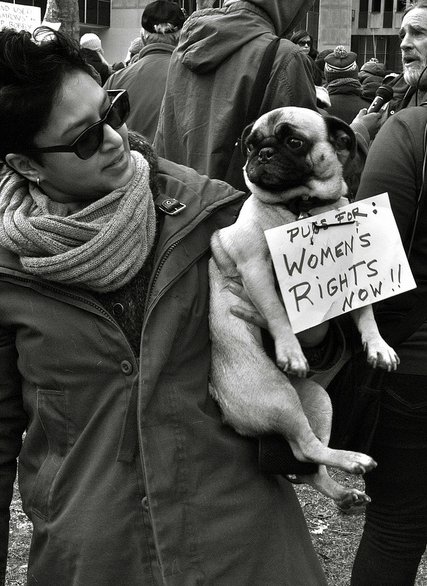 PUGS FOR:
WOMEN'S
RIGHTS
NOW!!